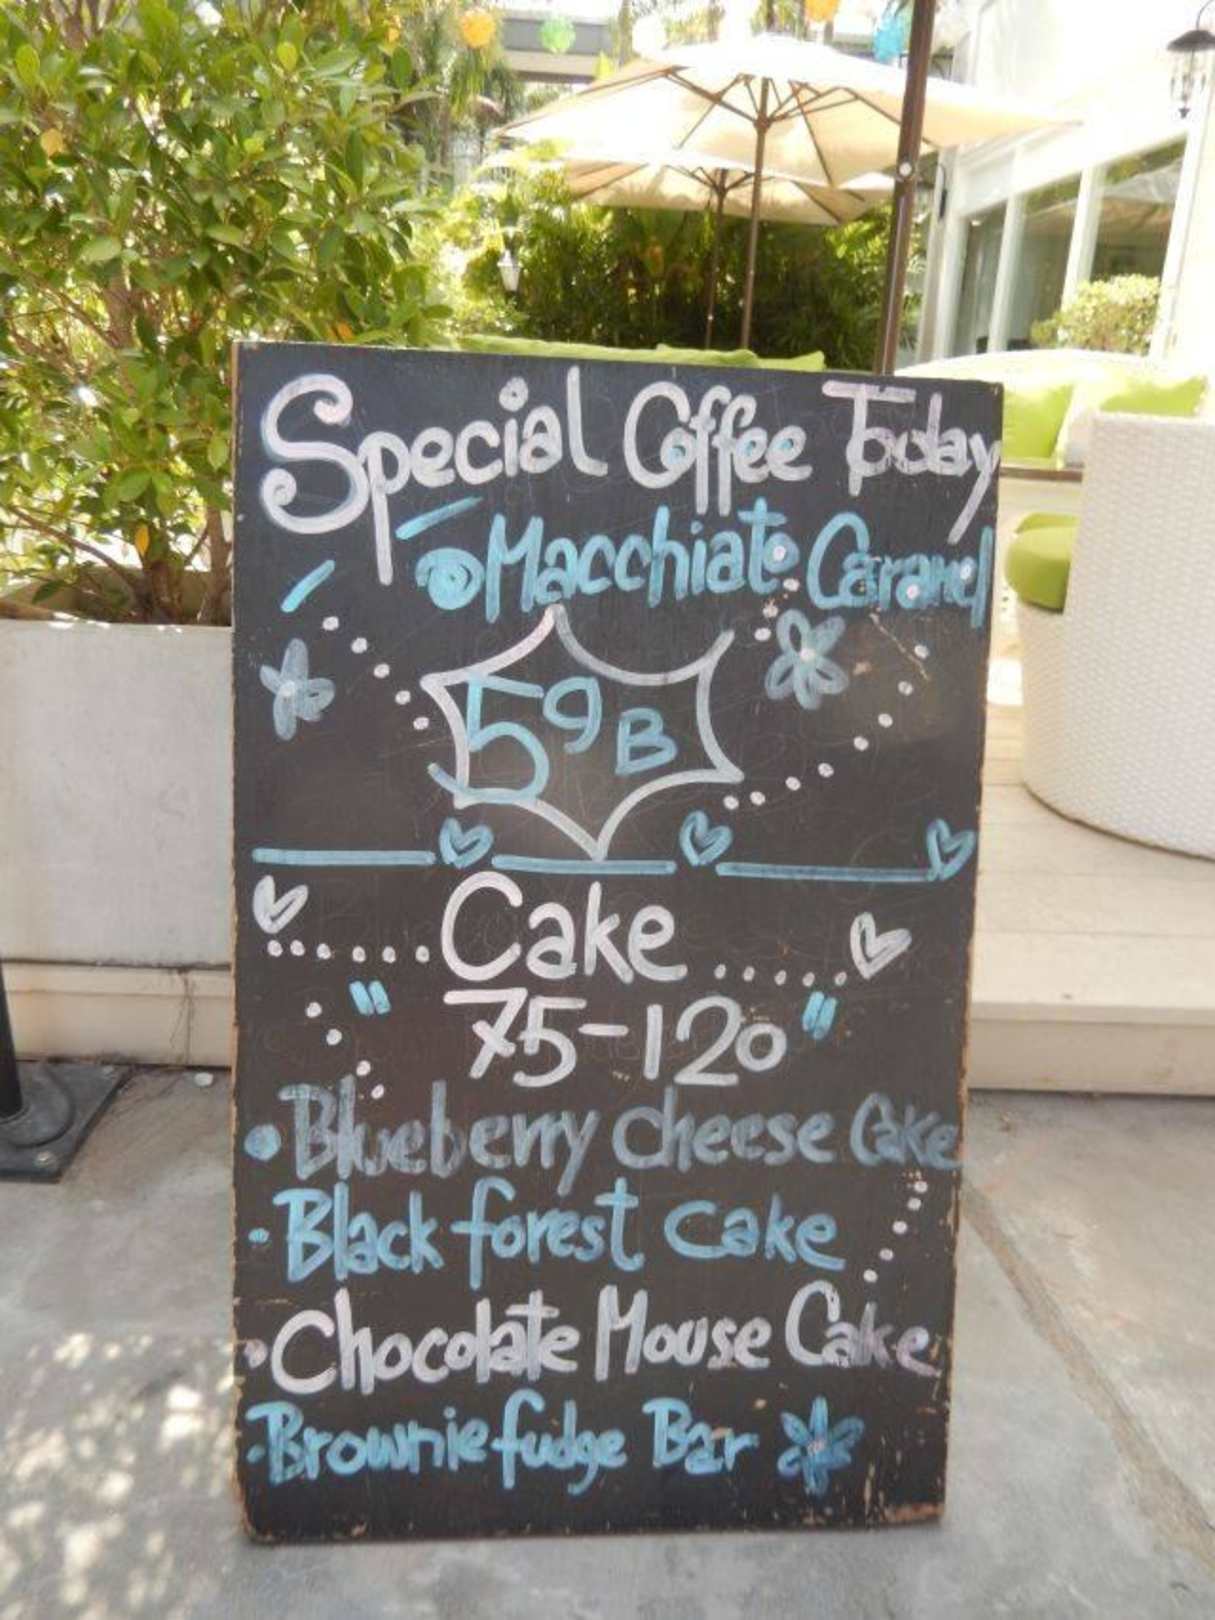 Special Coffee Today
Macchiato Caramel
59 B
Cake
"75-120"
• Blueberry cheese Cake
• Black forest cake
• Chocolate Mouse Cake
• Brownie fudge Bar